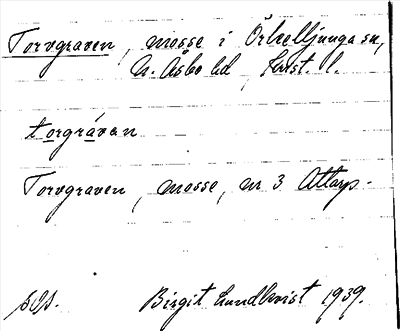 Torvgraven, mosse i Örkelljunga sn,
N. Åsbo hd, Krist. l.
torgráven
Torvgraven, mosse, nr 3 Attarp.
Birgit Lundkvist 1939.